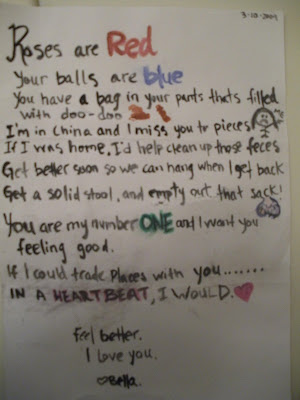 3-20-2009
Roses are Red
Your balls are blue
You have a bag in your pants thats filled
with doo-doo
I'm in China and I miss you to pieces!
If I was home, I'd help clean up those feces
Get better soon so we can hang when I get back
Get a solid stool, and empty out that sack!
You are my number ONE and I want you
feeling good.
If I could trade places with you.......
IN A HEARTBEAT, I WOULD.
feel better.
I love you.
Bella.